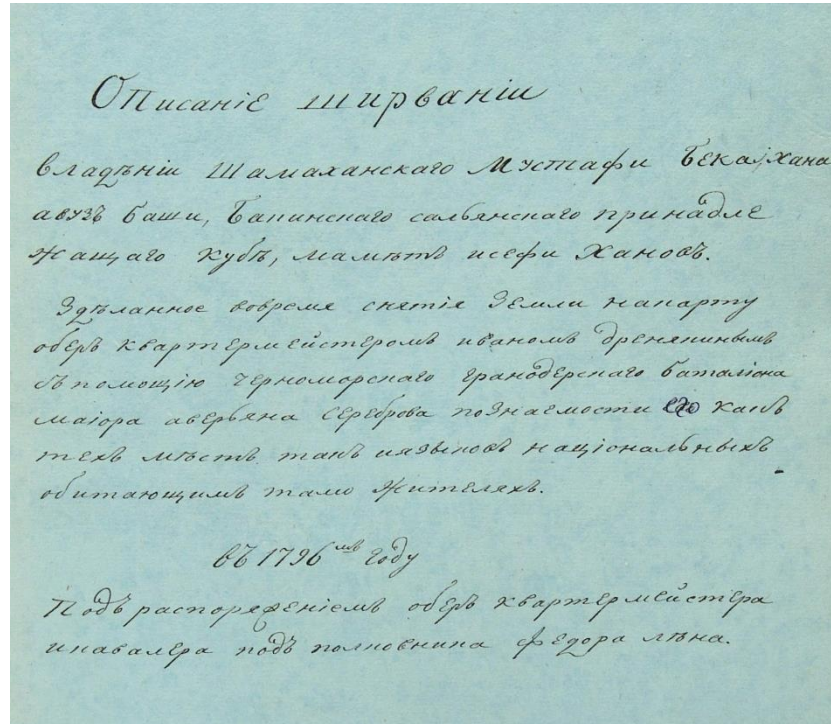 Описаніе ширваніи
владѣніи Шамаханскаго Мустафи Бека, Хана
авузъ баши, Бакинскаго сальянскаго принадле
жащаго кубѣ, мамѣтъ исефи Хановъ.
Здѣланное вовремя снятія Земли накарту
оберъ квартермейстеромъ иваномъ дренякинымъ
съпомощію черноморскаго гранодерскаго баталіона
маіора аверьяна сереброва познаемости его какъ
техъ мѣстъ такъ иязыковъ національныхъ
обитающимъ тамо жителяхъ.
въ 1796мъ году
Подъ распоряженіемъ оберъ квартермейстера
икавалера подъ полковника федора лѣна.